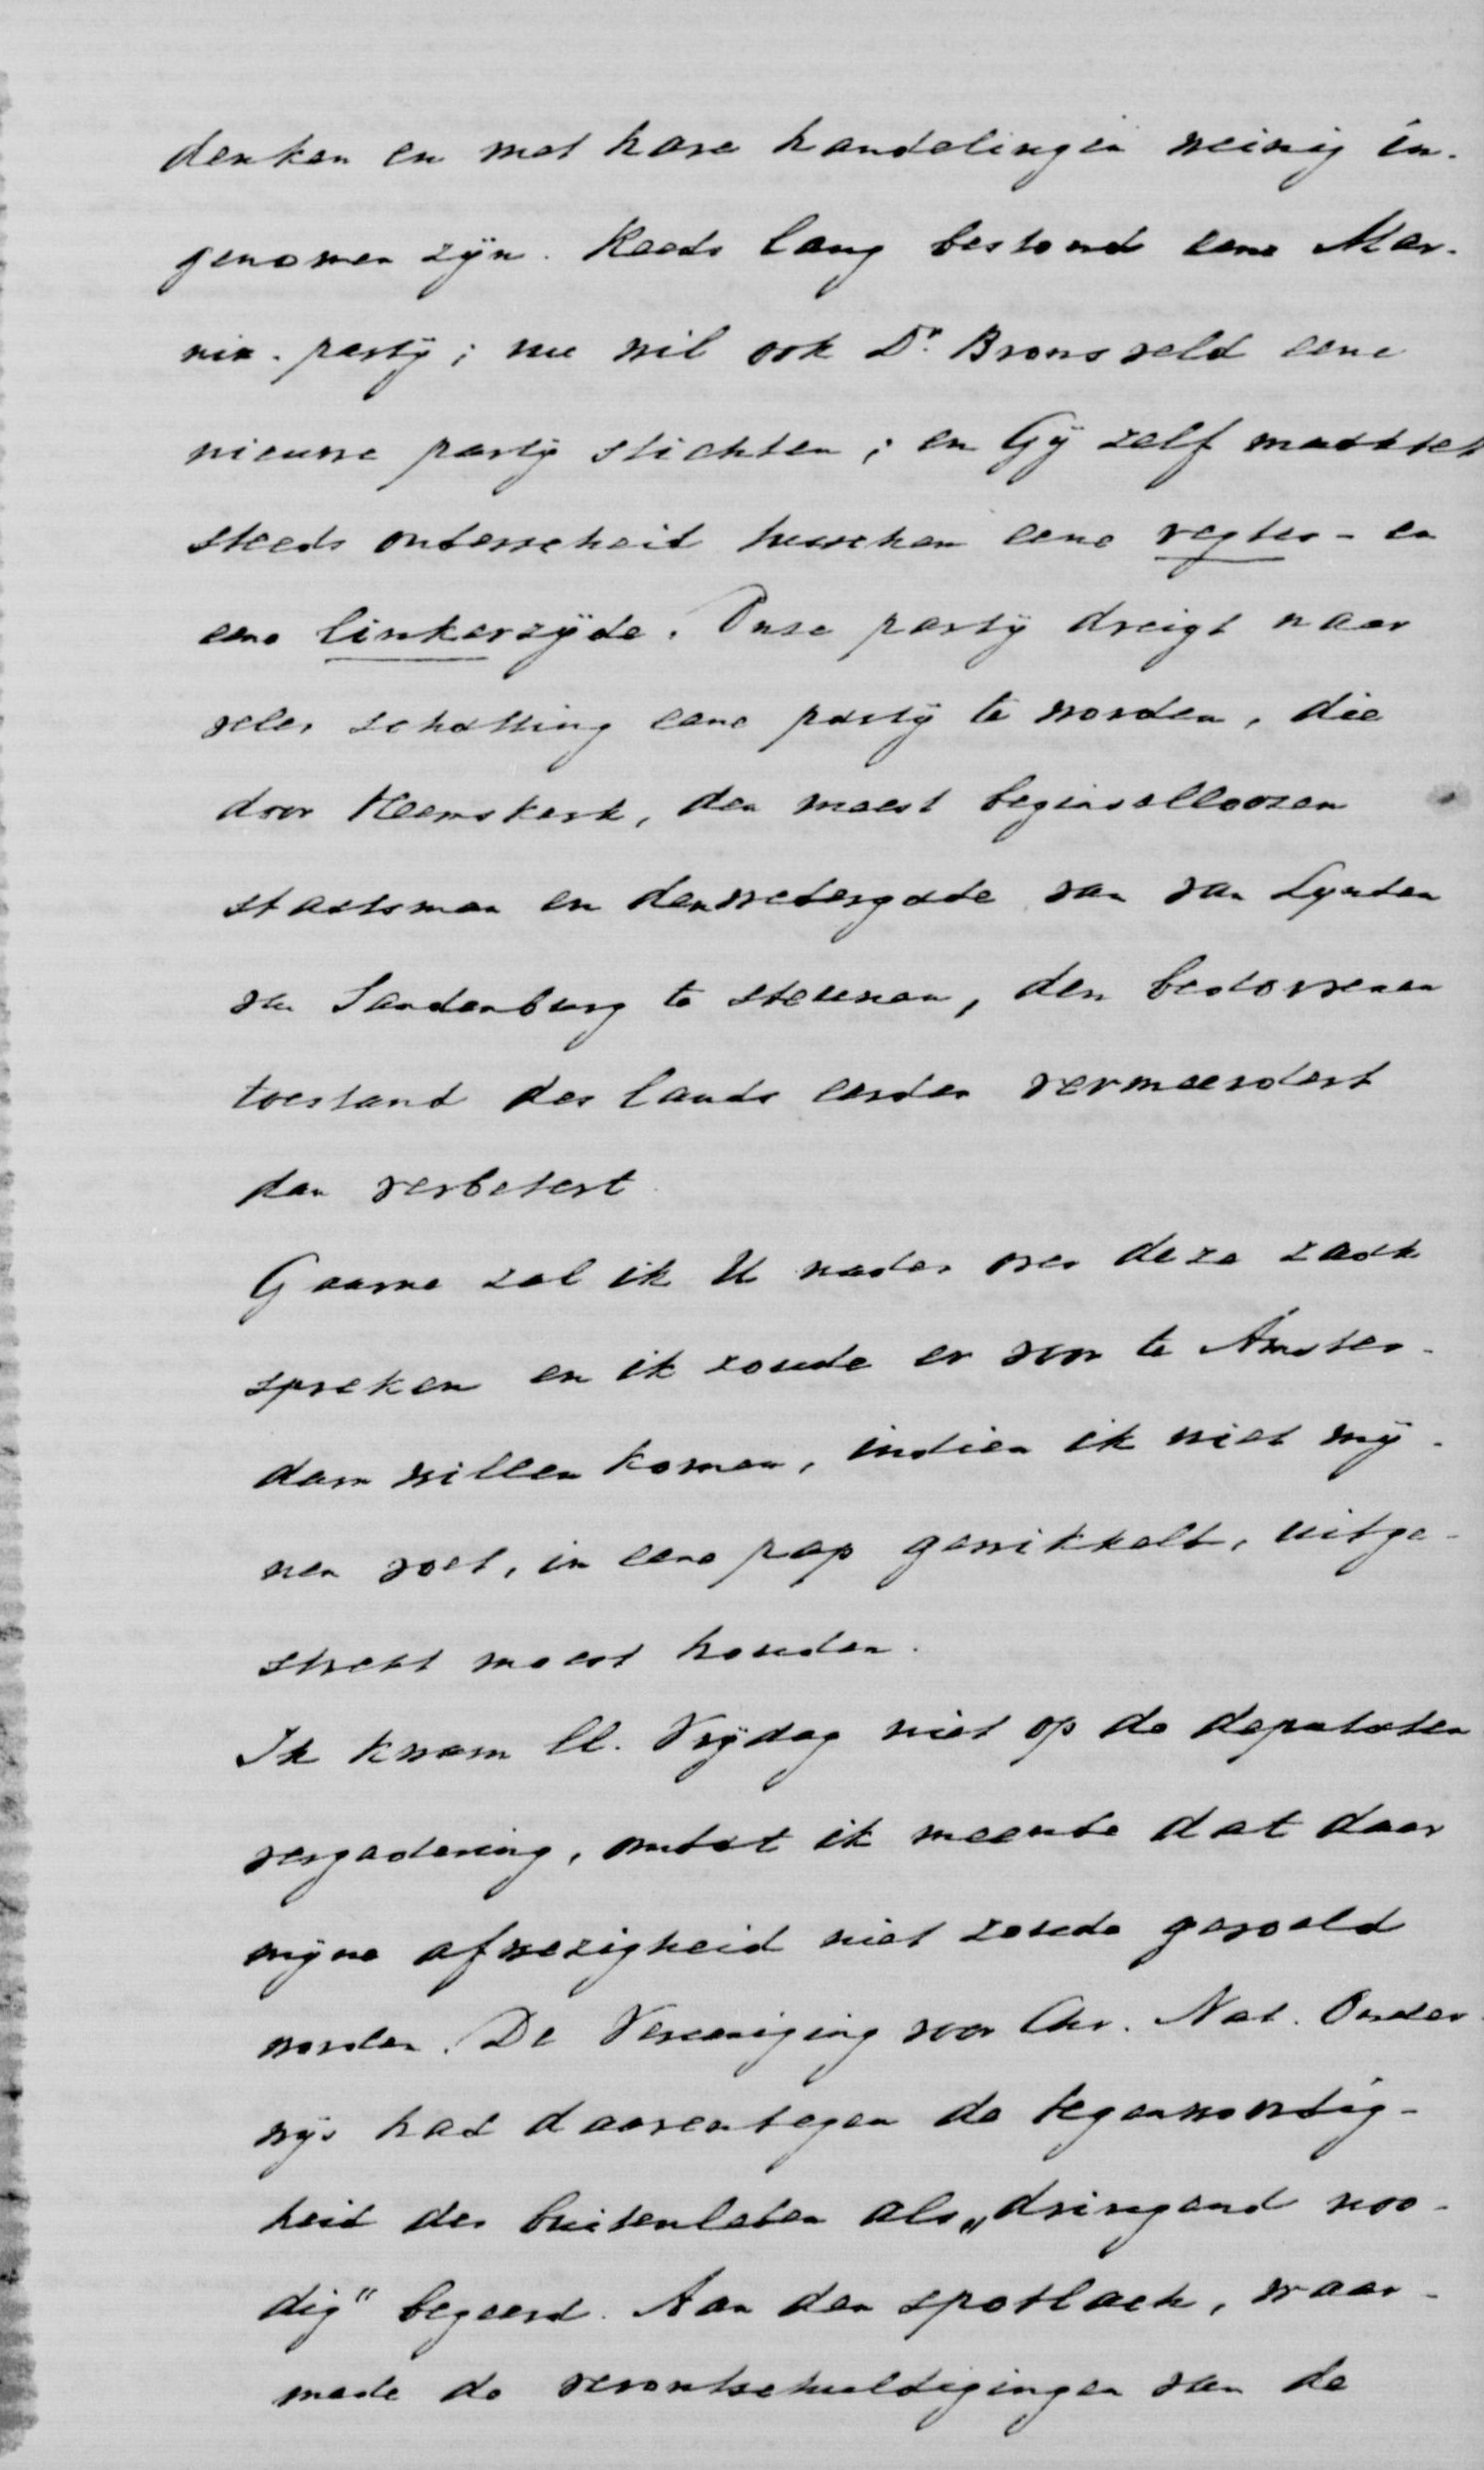 denken en met hare handelingen weinig in-
genomen zijn. Reeds lang bestond eene Mar-
nix-partij; nu wil ook Dr. Bronsveld eene
nieuwe partij stichten; en Gij zelf maaktet
steeds onderscheid tusschen eene regter- en
eene linkerzijde. Onze partij dreigt naar
veler schatting eene partij te worden, die
door Heemskerk, den meest beginselloozen
staatsman en den wedergade van van Lynden
van Sandenburg te steunen, den bedorvenen
toestand des lands eerder vermeerdert
dan verbetert.
Gaarne zal ik U nader over deze zaak
spreken en ik zoude er voor te Amster-
dam willen komen, indien ik niet mij-
nen voet, in eene pap gewikkelt, uitge-
strekt moest houden.
Ik kwam ll. Vrijdag niet op de deputaten
vergadering, omdat ik meende dat daar
mijne afwezigheid niet zoude gevoeld
worden. De Vereeniging voor Chr. Nat. Onder-
wijs had daarentegen de tegenwoordig-
heid der buitenleden als „dringend noo-
dig" begeerd. Aan den spotlach, waar-
mede de verontschuldigingen van de